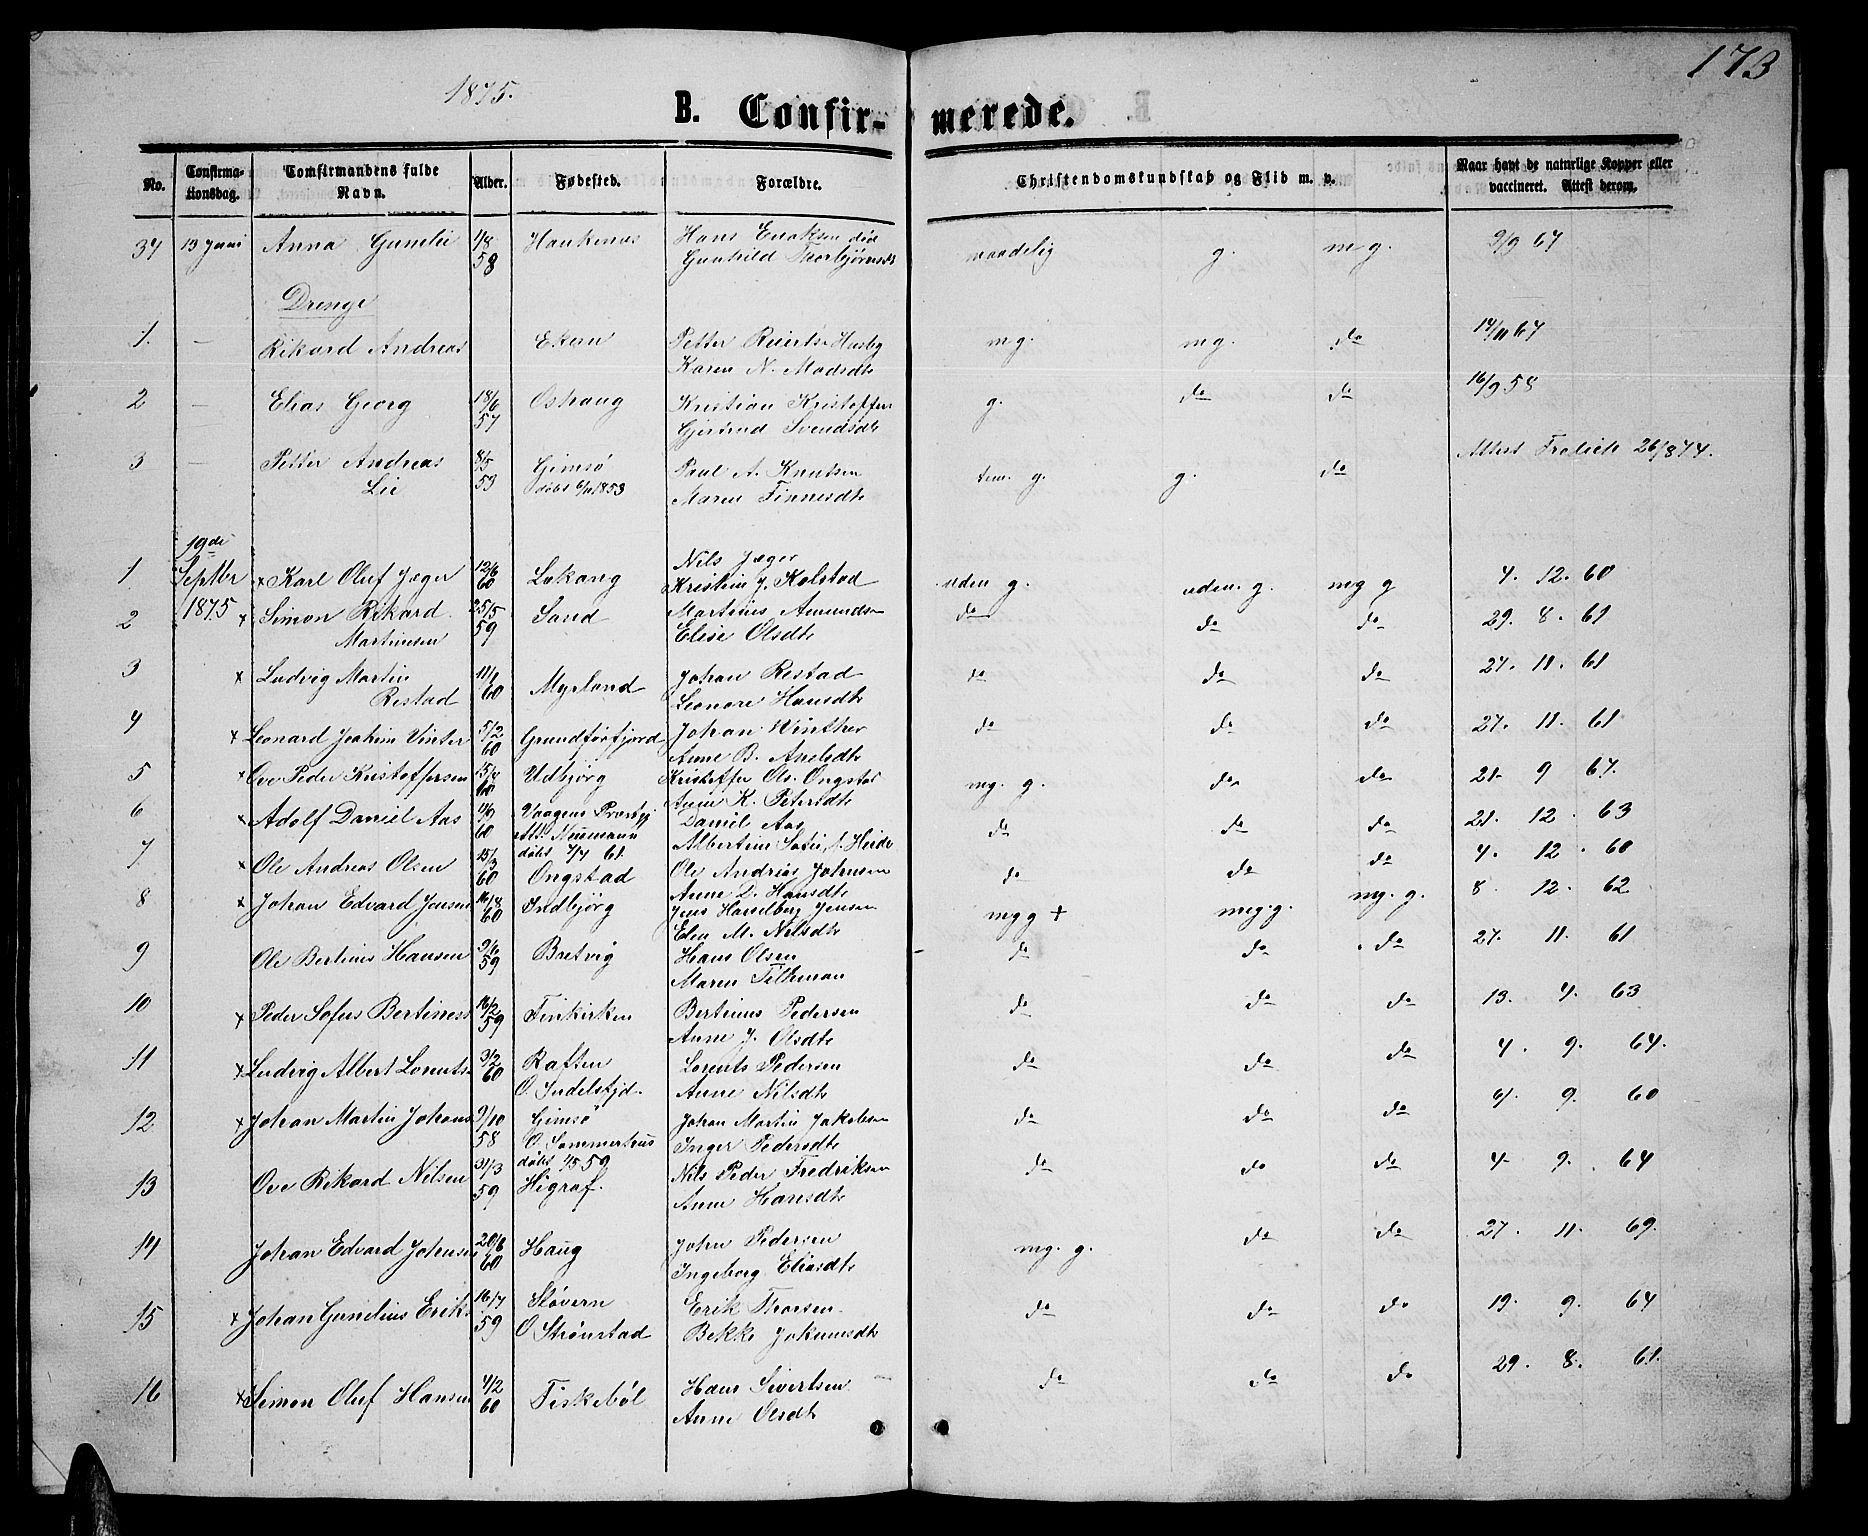 173
1875.
B. Confir- merede.
No. Confirma-tionsdag. Comfirmandens fulde Navn. Alder. Fødested. Forældre. Christendomskundskab og Flid m. v. Naar havt de naturlige Kopper eller vaccineret. Attest derom.
37 13 Juni Anna Gunelie 4/8 58 Haukenes Hans Eriksen død maadelig g. m g. 9/9 67
Gunhild Thorbjørnsdt
Drenge
1. — Rikard Andreas Petter Husby m g. m g. do 14/11 67
Karen N. Madsdt
2 — Elias Georg 18/6 57 Oshaug Kristian Kristoffers g. do do 16/9 58
Gjertrud Svendsdt
3 — Petter Andreas 8/5 53 Gimsø Paul A. Knutsen tem. g. g. do Attest 26/8 74.
Lie døbt 6/11 1853 Maren Finnesdt
19de
1 Septbr x Karl Oluf Jæger 12/6 60 Lokang Nils Jæger uden g. uden. g. mg g 4. 12. 60
Kristine J. Kolstad
2 1875 x Simon Rikard 25/5 59 Sand Martinus Amundsen do do do 29. 8. 61
Martinesen Elise Olsdt
3 x Ludvig Martin 60 Myrland Johan Restad do do do 27. 11. 61
Restad Leonore Hansdt
4 x Leonard Joakim Vinter 5/2 60 Grundforfjord Johan Winther do do do 27. 11. 61
Anne B. Axelsdt
5 x Ove Peder Kristoffersen 60 Udbjørg Kristoffer Ols. Ongstad mg. g. do do 21. 9 67.
Anne K. Petersdt
6 x Adolf Daniel Aas 60 Vaagens Præstgj Daniel Aas do do do 21. 12. 63
Att. Neumann Albertine Heide
7 x Ole Andreas Olsen 15/3 60 døbt 7/4 61. Ole Andreas Johnsen do do do 4. 12. 60
Ongstad Anne L. Hansdt
8 x Johan Edvard Jensen 16/8 60 Indbjørg Jens Hasselberg Jensen mgg + meg. g. mg. g. 8. 12. 62.
Elen M. Nilsdt
9 Ole Bertinus Hansen 59 Bretvig Hans Olsen do do do 27. 11. 61
Maren Tilkman
10 x Peder Sofus Bertiness 16/2 59 Finkirken Bertinus Pedersen do do do 13. 4. 63
Anne J. Olsdt
11 x Ludvig Albert Lorents. 3/2 60 Raften Lorents Pedersen do do do 4. 9. 64.
O. Indelsfjd. Anne Nilsdt
12 x Johan Martin Johans 9/10 58 Gimsø Johan Martin Jakobsen do do do 4. 9. 60
O. Sommerhus Inger Pedersdt
døbt 59
13 Ove Rikard Nilsen 31/3 59 Higraf. Nils Peder Fredriksen do do do 4. 9. 64
Anne Hansdt
14 Johan Edvard Johnsen 20/8 60 Haug John Pedersen mg. g. do do 27. 11. 69.
Ingeborg Eliasdt
15 x Johan Gunelius Eriks 16/7 59 Støvern Erik Thorsen do do do 19. 9. 64
O Strønstad Bekke Jokumsdt
16 x Simon Oluf Hansen 4/2 60 Fiskebøl Hans Sivertsen do do do 29. 8. 61.
Anne Olsdt